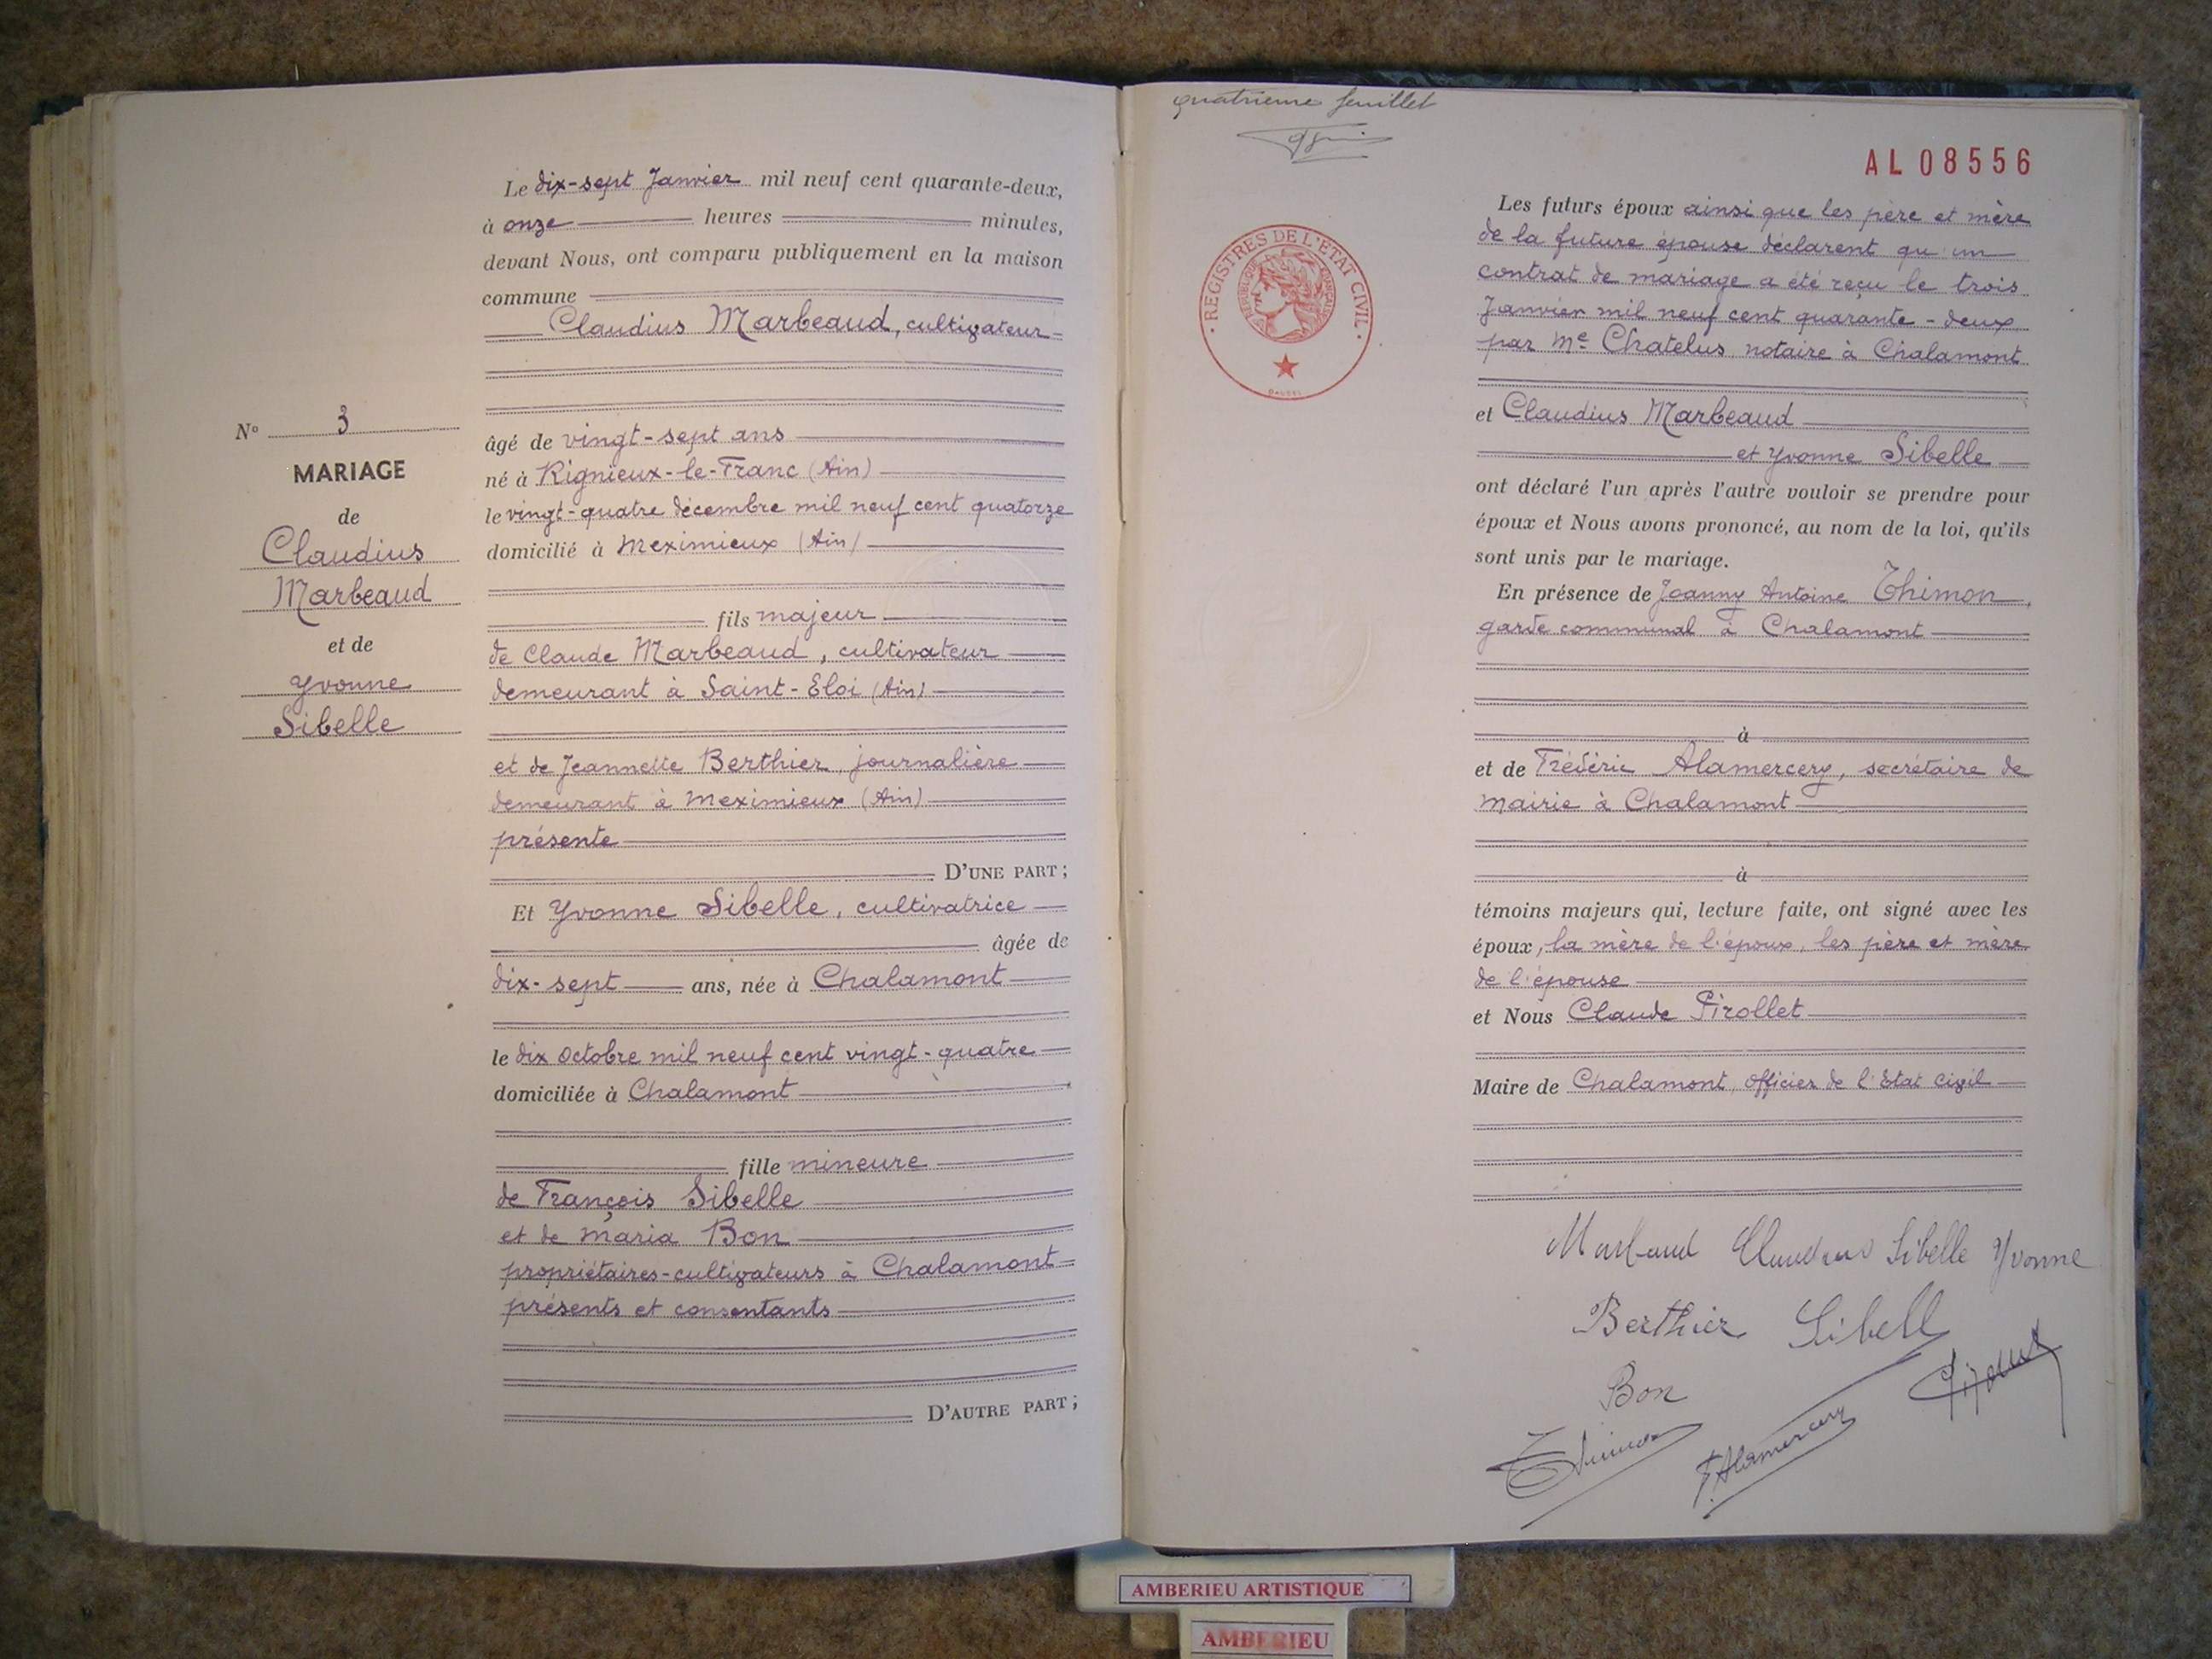 N° 3
MARIAGE
de
Claudius
Marbeaud
et de
Yvonne
Sibelle
Le dix-sept Janvier mil neuf cent quarante-deux,
à onze heures minutes,
devant Nous, ont comparu publiquement en la maison
commune
Claudius Marbeaud, cultivateur
âgé de vingt-sept ans
né à Rignieux-le-Franc (Ain)
le vingt-quatre décembre mil neuf cent quatorze
domicilié à Meximieux (Ain)
fils majeur
de Claude Marbeaud, cultivateur
demeurant à Saint-Eloi (Ain)
et de Jeannette Berthier, journalière
demeurant à Meximieux (Ain)
présente
D'UNE PART ;
Et Yvonne Sibelle, cultivatrice
âgée de
dix-sept ans, née à Chalamont
le dix Octobre mil neuf cent vingt-quatre
domiciliée à Chalamont
fille mineure
de François Sibelle
et de Maria Bon
propriétaires-cultivateurs à Chalamont
présents et consentants
D'AUTRE PART ;
quatrième feuillet
AL 08556
REGISTRES DE L'ETAT CIVIL
Les futurs époux ainsi que les père et mère
de la future épouse déclarent qu'un
contrat de mariage a été reçu le trois
Janvier mil neuf cent quarante-deux
par Me Chatelus, notaire à Chalamont
et Claudius Marbeaud
et Yvonne Sibelle
ont déclaré l'un après l'autre vouloir se prendre pour
époux et Nous avons prononcé, au nom de la loi, qu'ils
sont unis par le mariage.
En présence de Joanny Antoine Thimon,
garde communal à Chalamont
à
et de Frédéric Alamercery, secrétaire de
mairie à Chalamont
à
témoins majeurs qui, lecture faite, ont signé avec les
époux, la mère de l'époux, les père et mère
de l'épouse
et Nous Claude Pirollet
Maire de Chalamont, officier de l'Etat civil
Marbeaud Claudius Sibelle Yvonne
Berthier Sibell
Bon
Thimon F. Alamercery Pirollet
AMBERIEU ARTISTIQUE
AMBERIEU